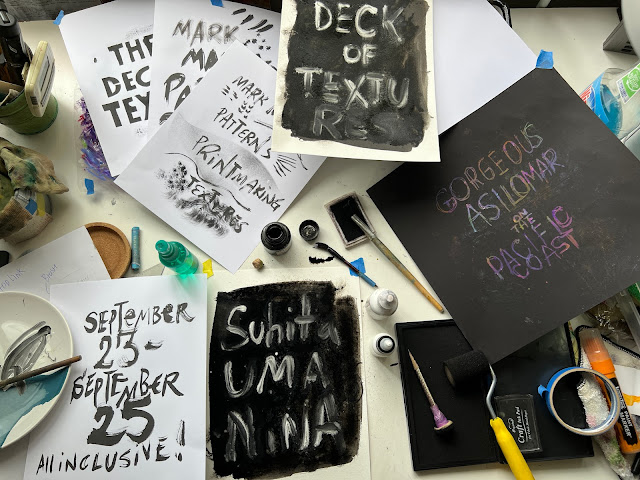 THE
DEC
TEX
MARK
MA
PA
MARK M
PATTERNS
PRINTMAKING
TEXTURES
DECK
OF
TEXTU
RES
GORGEOUS
ASILOMAR
ON THE
PACIFIC
COAST
SEPTEMBER
23-
SEPTEMBER
25
All INCLUSIVE!
Suhita
UMA
NiNA